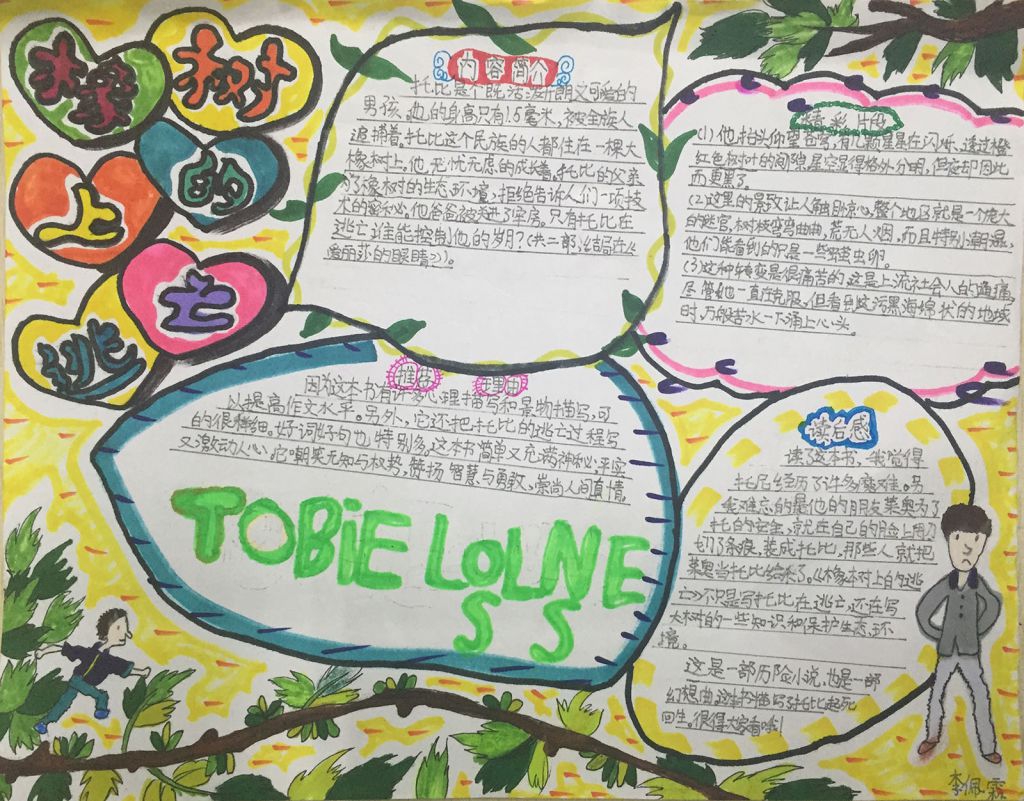 橡树
上的
逃亡
内容简介
托比是个既活泼开朗又可爱的
男孩。他的身高只有1.5毫米,被全族人
追捕着。托比这个民族的人都住在一棵大
橡树上。他无忧无虑的成长着。托比的父亲
为了橡树的生态环境,拒绝告诉人们一项技
术的秘密。他爸爸被关进了牢房。只有托比在
逃亡,谁能控制他的岁月?(共二部,结局在《
爱丽莎的眼睛》)。
精彩片段
(1)他抬头仰望苍穹,有几颗星星在闪烁,透过橙
红色树叶的间隙,星空显得格外分明,但夜却因此
而更黑了。
(2)这里的景致让人触目惊心。整个地区就是一个庞大
的迷宫,树枝弯弯曲曲,荒无人烟,而且特别潮湿,
他们能看到的只是一些蛀虫卵。
(3)这种转变是很痛苦的,这是上流社会人的通痛,
尽管她一直在克服,但看到这污黑海绵状的地域
时,万般苦水一下涌上心头。
推荐理由
因为这本书有许多心理描写和景物描写,可
以提高作文水平。另外,它还把托比的逃亡过程写
的很精细。好词好句也特别多。这本书简单又充满神秘,平实
又激动人心。它嘲笑无知与权势,赞扬智慧与勇敢,崇尚人间真情。
TOBIE LOLNE
SS
读后感
读了这本书,我觉得
托比经历了许多磨难。另
我难忘的是他的朋友莱奥为了
托的安全,就在自己的脸上用刀
切了条痕,装成托比,那些人就把
莱奥当托比给杀了。《橡树上的逃
亡》不只是写托比在逃亡,还在写
大树的一些知识和保护生态环
境。
这是一部历险小说,也是一部
幻想曲,这本书描写了托比起死
回生。很得大家看哦!
李佩霖